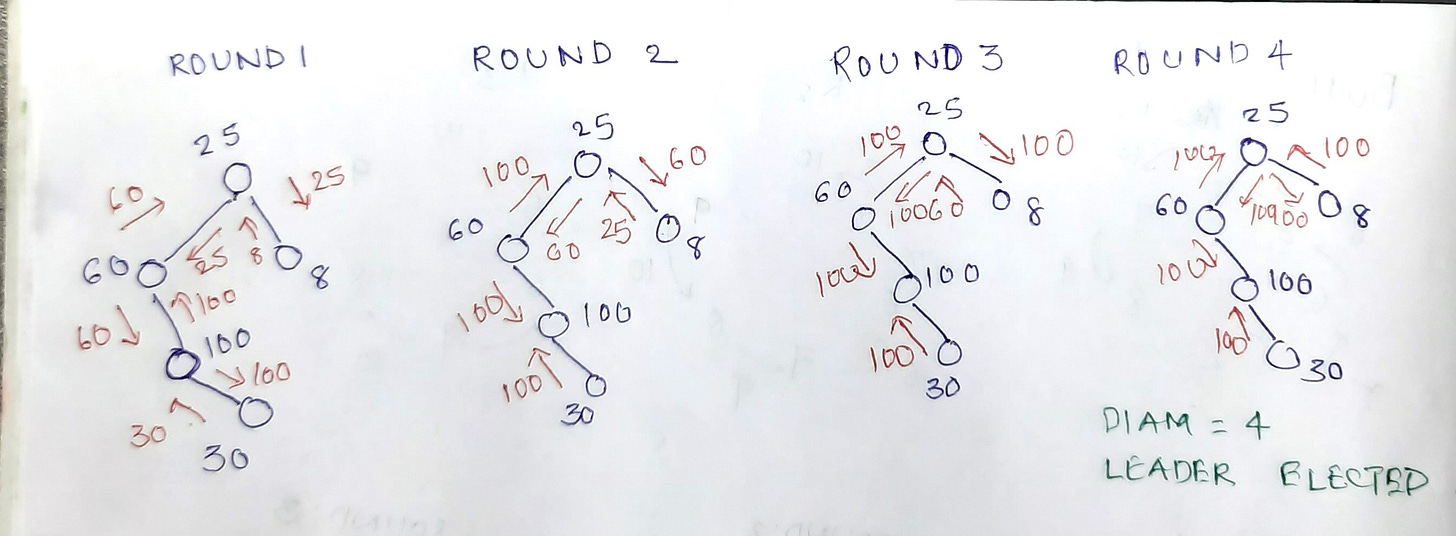 ROUND 1
25
60
25
60
25
8
8
60
100
100
100
30
30
ROUND 2
25
100
60
60
60
25
8
100
100
100
30
ROUND 3
25
100
100
60
100
60
8
100
100
100
30
ROUND 4
25
100
100
60
8
100
100
100
30
DIAM = 4
LEADER ELECTED